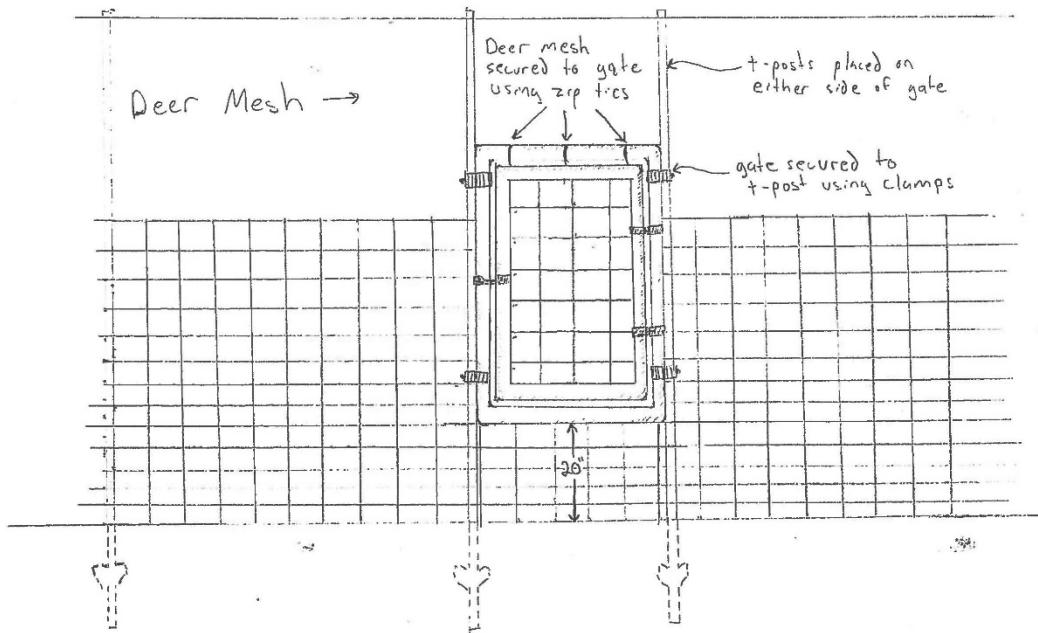 Deer Mesh →
Deer mesh
secured to gate
using zip ties
t-posts placed on
either side of gate
gate secured to
t-post using clamps
20"